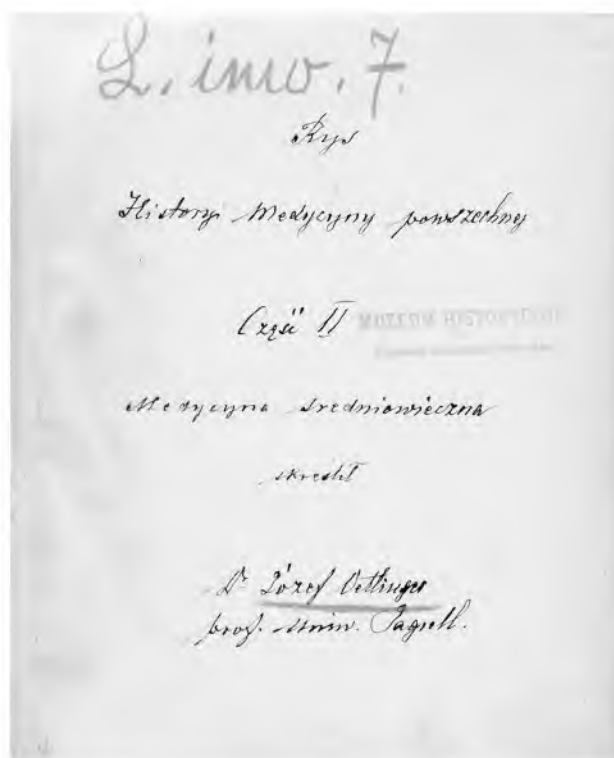 L. inw. 7.
Rys
Historyi Medycyny powszechnej
Część II
Medycyna średniowieczna
skreślił
Dr Józef Oettinger
prof. Uniw. Jagiell.